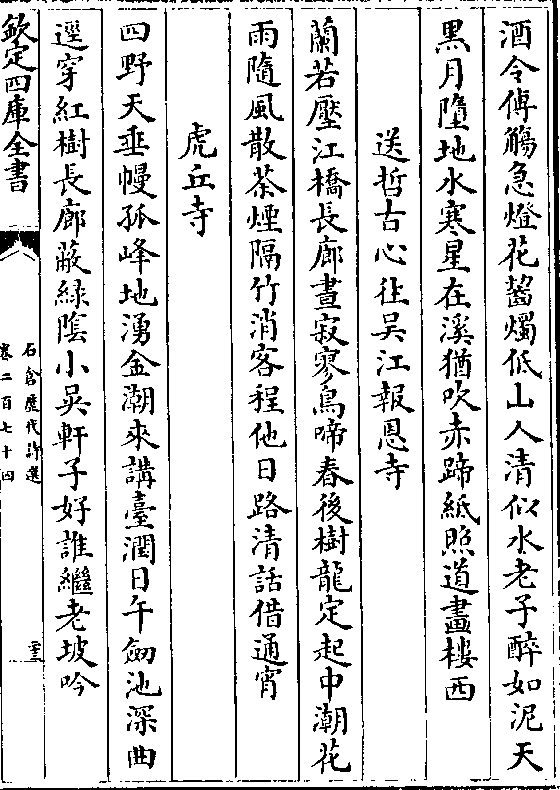 酒令傳觴急燈花齧燭低山人清似水老子醉如泥天
黒月墮地水寒星在溪猶吹赤蹄紙照道畫樓西
送哲古心往吴江報恩寺
蘭若壓江橋長廊晝寂寥鳥啼春後樹龍定起中潮花
雨隨風散茶煙隔竹消客程他日路清話借通宵
虎丘寺
四野天垂幔孤峰地湧金潮來講臺濶日午劒池深曲
逕穿紅樹長廊蔽緑陰小吳軒子好誰繼老坡吟
欽定四庫全書
石倉歴代詩選
卷二百七十四
二十三